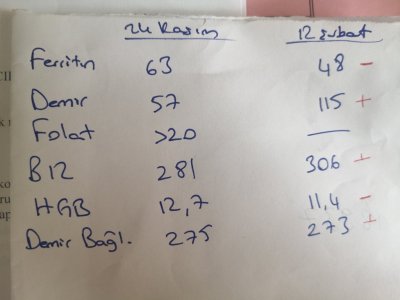 24 Kasım 12 Şubat
Ferritin 63 48 -
Demir 57 115 +
Folat >20 —
B12 281 306 +
HGB 12,7 11,4 -
Demir Bağl. 275 273 +